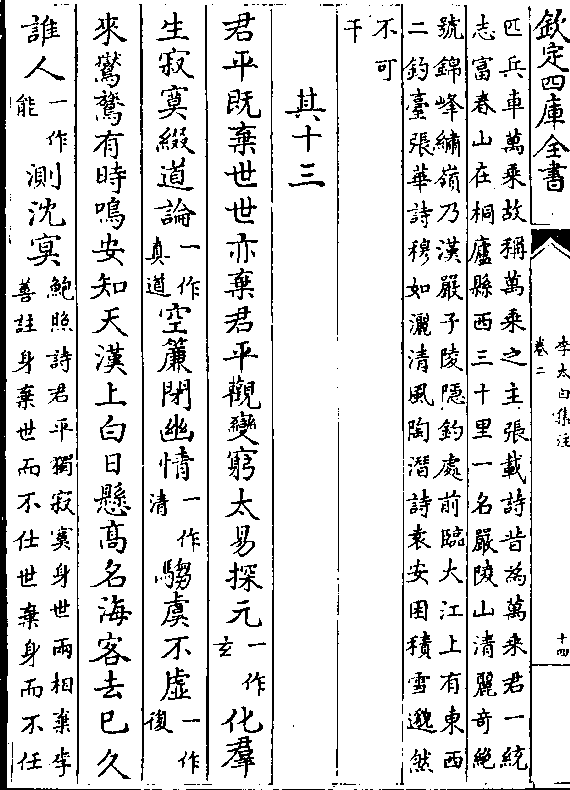 欽定四庫全書
李太白集注
卷二
十四
匹兵車萬乗故稱萬乗之主張載詩昔為萬乗君一統
志富春山在桐廬縣西三十里一名嚴陵山清麗奇絶
號錦峰繡嶺乃漢嚴子陵隠釣處前臨大江上有東西
二釣臺張華詩穆如灑清風陶潛詩袁安困積雪邈然
不可
干
其十三
君平既棄世世亦棄君平觀變窮太易探元一作玄化羣
生寂寞綴道論一作真道空簾閉幽情一作清騶虞不虚一作復
來鸑鷟有時鳴安知天漢上白日懸髙名海客去已久
誰人一作能測沈冥鮑照詩君平獨寂寞身世兩相棄李
善註身棄世而不仕世棄身而不任